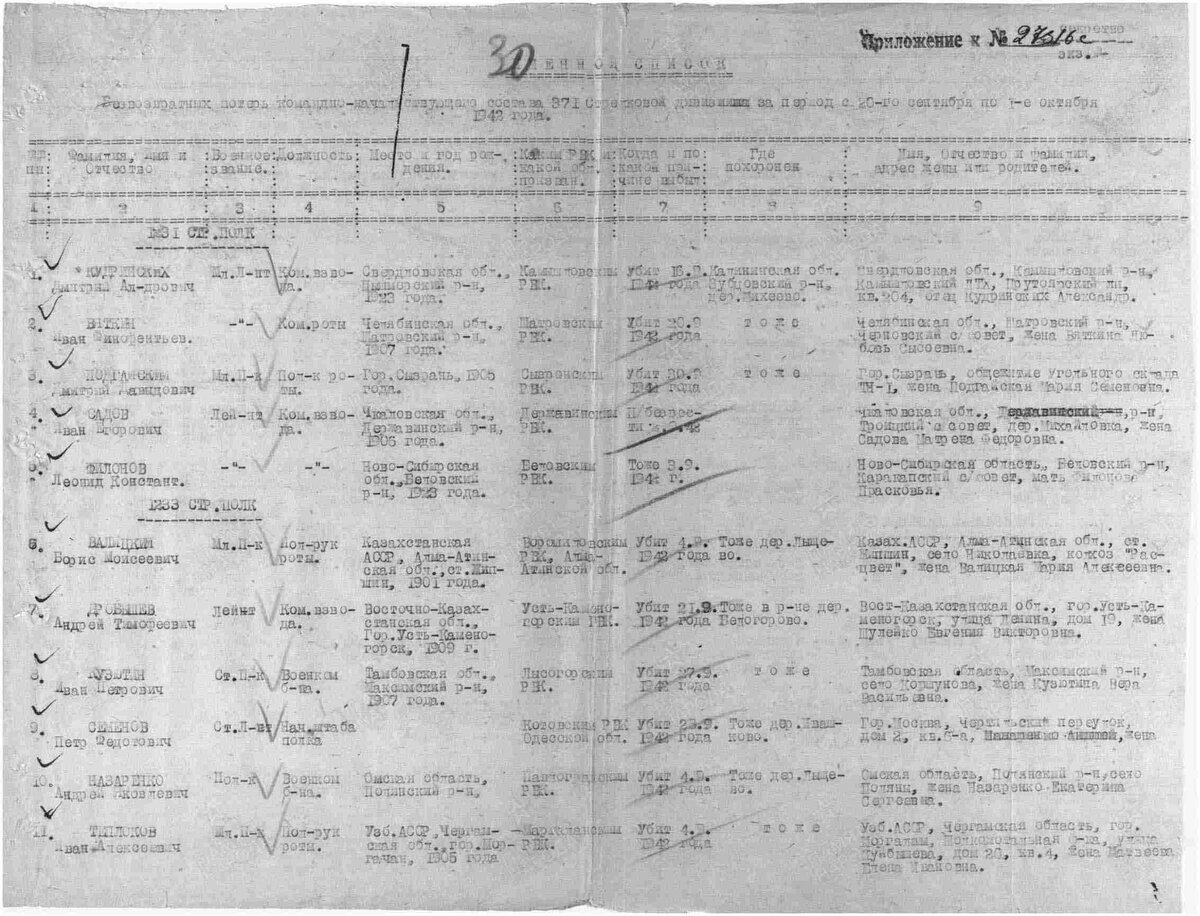 Секретно
Приложение к № 27316с
экз.
30
ИМЕННОЙ СПИСОК
Безвозвратных потерь командно-начальствующего состава 371 Стрелковой дивизии за период с 20-го сентября по 1-е октября
1942 года.
Фамилия, Имя и Отчество : Военное звание. : Должность : Место и год рождения. : Каким РВК и какой обл. призван. : Когда и по какой причине выбыл : Где похоронен : Имя, Отчество и фамилия, адрес жены или родителей.
1 : 2 : 3 : 4 : 5 : 6 : 7 : 8 : 9
1231 СТР.ПОЛК
1. КУДРИНСКИХ Мл.Л-нт Ком.взво- Свердловская обл., Камышловским Убит 16.9. Калининская обл. Свердловская обл., Камышловский р-н,
Дмитрий Ал-дрович да. р-н, РВК. 1942 года Зубцовский р-н, Камышловский
1923 года. дер.Михеево. кв.264, отец Кудринских Александр.
2. ВЯТКИН -"- Ком.роты Челябинская обл., Шатровским Убит 20.9 т о ж е Челябинская обл., Шатровский р-н,
Иван Финофентьев. Шатровский р-н, РВК. 1942 года Черновский с/совет, жена Вяткина Лю-
1907 года. бовь Сысоевна.
3. ПОДГАЙСКИЙ Мл.П-к Пол-к ро- Гор.Сызрань, 1905 Сызранским Убит 30.9 т о ж е Гор.Сызрань, общежитие Угольного склада
Дмитрий Давыдович ты. года. РВК. 1942 года жена Подгайская Мария Семеновна.
4. САДОВ Лей-нт Ком.взво- Чкаловская обл., Державинским П/безвес- Чкаловская обл., Державинский р-н,
Иван Егорович да. Державинский р-н, РВК. Троицкий с/совет, дер.Михайловка, жена
1906 года. Садова Матрена Федоровна.
5. ФИЛОНОВ -"- -"- Ново-Сибирская Беловским Тоже 3.9. Ново-Сибирская область, Беловский р-н,
Леонид Констант. обл.,Беловский РВК. 1942 г. Каракапский с/совет, мать Филонова
р-н, 1923 года. Прасковья.
1233 СТР.ПОЛК
6. ВАЛИЦКИЙ Мл.П-к Пол-рук Казахстанская Ворошиловским Убит 4.9. Тоже дер.Лыще- Казах.АССР, Алма-Атинская обл., ст.
Борис Моисеевич роты. АССР, Алма-Атин- РВК, Алма- 1942 года во. село Николаевка, колхоз "Рас-
ская обл.,ст. Атинской обл. цвет", жена Валицкая Мария Алексеевна.
1901 года.
7. ДРОБЫШЕВ Лейнт Ком.взво- Восточно-Казах- Усть-Камено- Убит 21.9. Тоже в р-не дер. Вост-Казахстанская обл., гор.Усть-Ка-
Андрей Тимофеевич да. станская обл., горским РВК. 1942 года Белогорово. меногорск, улица Ленина, дом 19, жена
Гор.Усть-Камено- Шулейко Евгения Викторовна.
горск, 1909 г.
8. КУЗЮТИН Ст.П-к Военком Тамбовская обл., Лысогорским Убит 27.9. т о ж е Тамбовская область, Максимский р-н,
Иван Петрович б-на. Максимский р-н, РВК. 1942 года село Коршунова, жена Кузютина Вера
1907 года. Васильевна.
9. СЕМЕНОВ Ст.Л-нт Нач.штаба Котовским РВК Убит 23.9. Тоже дер.Иваш- Гор.Москва, переулок,
Петр Федотович полка Одесской обл. 1942 года ково. дом 2, кв.6-а, жена
10. НАЗАРЕНКО Пол-к Военком Омская область, Павлоградским Убит 4.9. Тоже дер.Лыще- Омская область, Полянский р-н,село
Андрей Яковлевич б-на. Полянский р-н, РВК. 1942 года во. Поляны, жена Назаренко Екатерина
Сергеевна.
11. Мл.П-к Пол-рук Узб.АССР,Чергам- Маргаланским Убит 4.9. т о ж е Узб.АССР, Чергамская область, гор.
Иван Алексеевич роты. ская обл.,гор.Мор- РВК. 1942 года Моргалам, улица
гачан, 1905 года Куйбышева, дом 20, кв.4, жена Матвеева
Елена Ивановна.